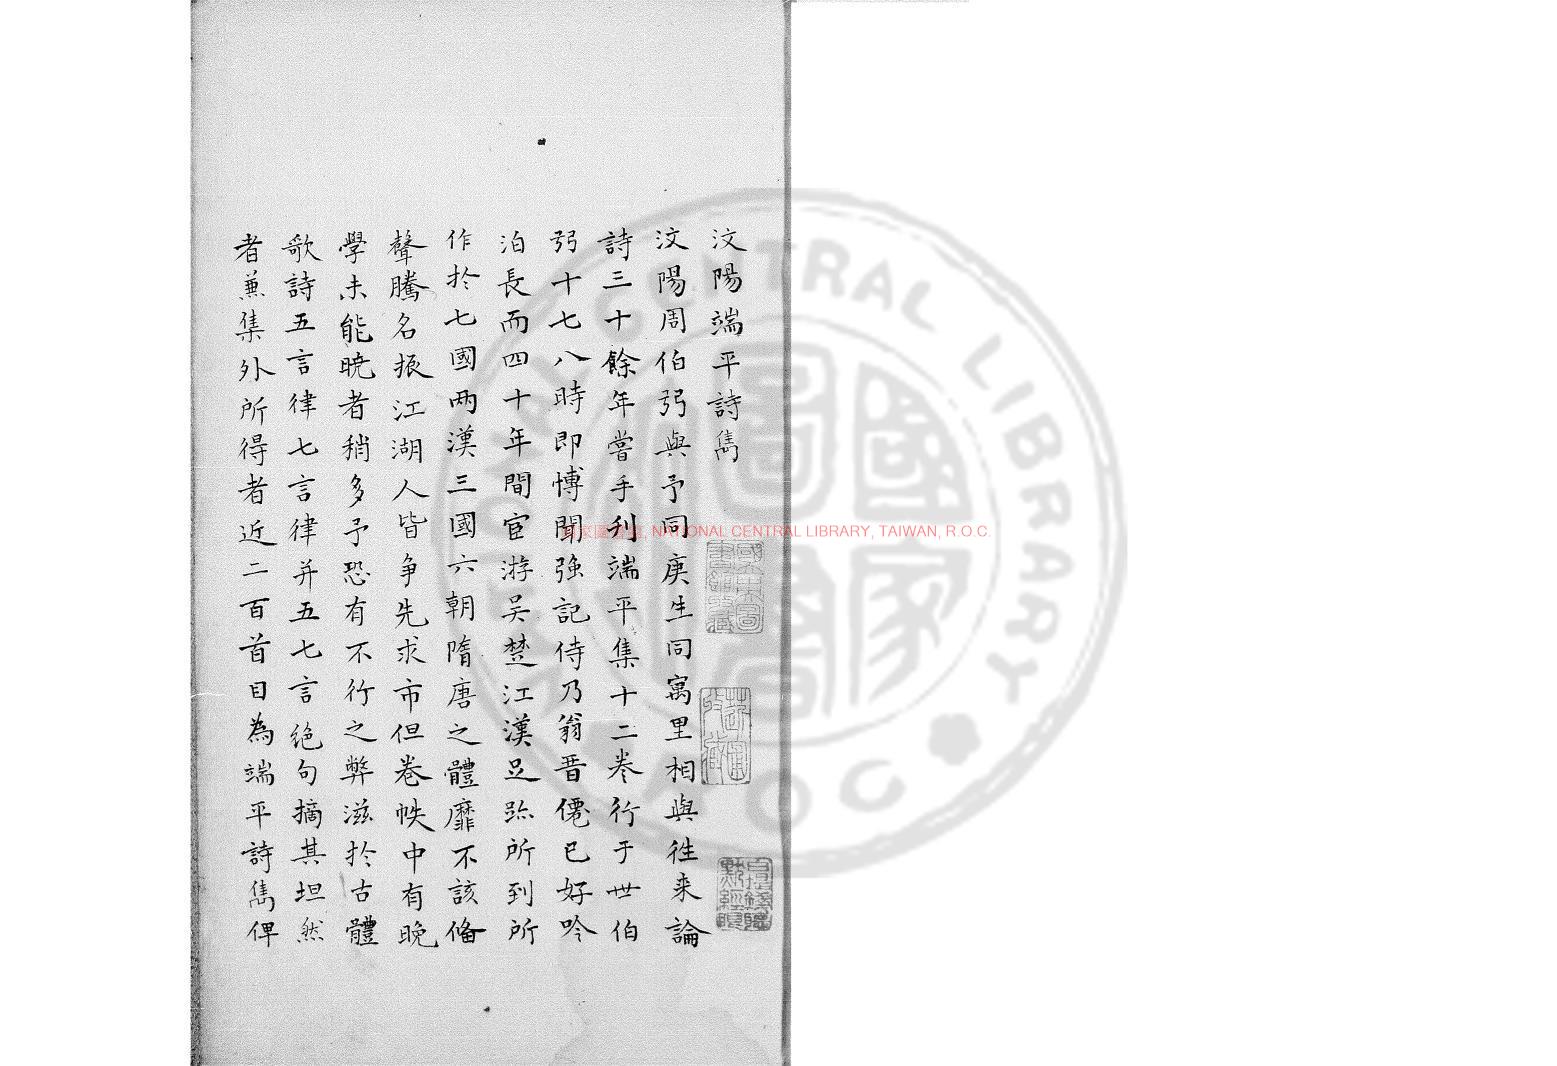 汶陽端平詩雋
汶陽周伯弜與予同庚生同寓里相與徃来論
詩三十餘年嘗手刋端平集十二巻行于世伯
弜十七八時即博聞強記侍乃翁晋僊已好吟
洎長而四十年間宦游吴楚江漢足跡所到所
作扵七國两漢三國六朝隋唐之體靡不該俻
聲騰名振江湖人皆争先求市但巻帙中有晚
學未能暁者稍多予恐有不行之弊滋扵古體
歌詩五言律七言律并五七言絶句摘其坦然
者蕙集外所得者近二百首目為端平詩雋俾
國家圖書館, NATIONAL CENTRAL LIBRARY, TAIWAN, R.O.C.
NATIONAL CENTRAL LIBRARY ROC
國家圖書